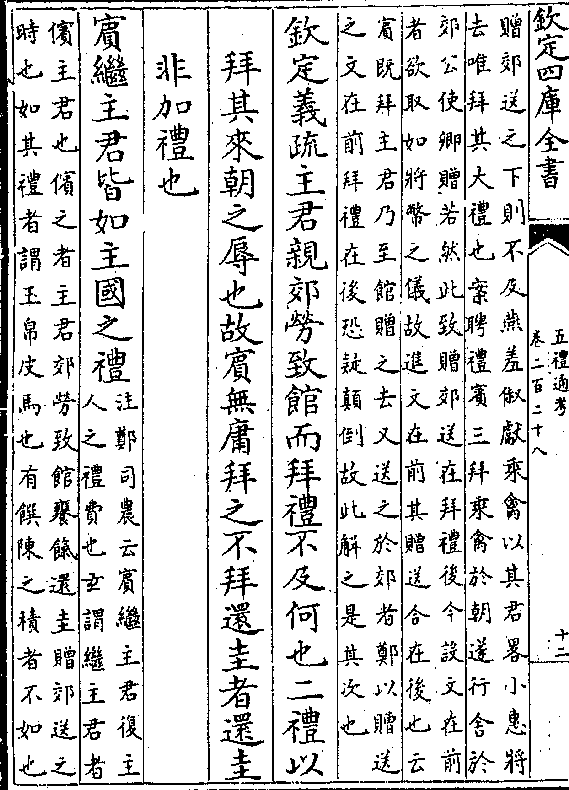 欽定四庫全書
五禮通考
卷二百二十八
十二
贈郊送之下則不及燕羞俶獻乘禽以其君畧小惠將
去唯拜其大禮也案聘禮賓三拜乘禽於朝遂行舍於
郊公使卿贈若然此致贈郊送在拜禮後今設文在前
者欲取如將幣之儀故進文在前其贈送合在後也云
賓既拜主君乃至館贈之去又送之於郊者鄭以贈送
之文在前拜禮在後恐疑顛倒故此解之是其次也
欽定義疏主君親郊勞致館而拜禮不及何也二禮以
拜其來朝之辱也故賓無庸拜之不拜還圭者還圭
非加禮也
賓繼主君皆如主國之禮
注鄭司農云賓繼主君復主
人之禮費也玄謂繼主君者
儐主君也儐之者主君郊勞致館饔餼還圭贈郊送之
時也如其禮者謂玉帛皮馬也有饌陳之積者不如也